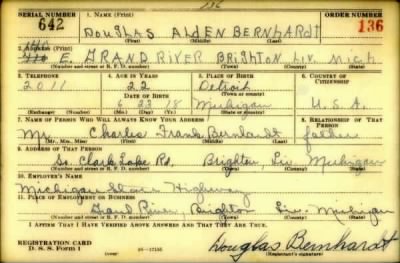 136
SERIAL NUMBER 1. NAME (Print) ORDER NUMBER
642 DOUGLAS ALDEN BERNHARDT 136
(First) (Middle) (Last)
2. ADDRESS (Print)
E. GRAND RIVER BRIGHTON LIV. MICH
(Number and street or R. F. D. number) (Town) (County) (State)
3. TELEPHONE 4. AGE IN YEARS 5. PLACE OF BIRTH 6. COUNTRY OF CITIZENSHIP
2011 22 Detroit
DATE OF BIRTH (Town or county)
6 23 18 Michigan U.S.A.
(Exchange) (Number) (Mo.) (Day) (Yr.) (State or country)
7. NAME OF PERSON WHO WILL ALWAYS KNOW YOUR ADDRESS 8. RELATIONSHIP OF THAT PERSON
Mr. Charles Frank Bernhardt father
(Mr., Mrs., Miss) (First) (Middle) (Last)
9. ADDRESS OF THAT PERSON
So. Clark Lake Rd, Brighton, Liv. Michigan
(Number and street or R. F. D. number) (Town) (County) (State)
10. EMPLOYER'S NAME
Michigan State Highway
11. PLACE OF EMPLOYMENT OR BUSINESS
Grand River, Brighton Liv. Michigan
(Number and street or R. F. D. number) (Town) (County) (State)
I AFFIRM THAT I HAVE VERIFIED ABOVE ANSWERS AND THAT THEY ARE TRUE.
REGISTRATION CARD
D. S. S. Form 1 16—17105 Douglas Bernhardt
(Registrant's signature)